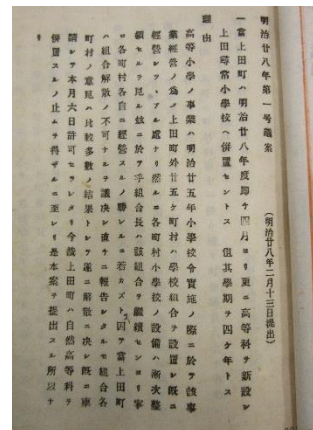 明治廿八年第一号議案
(明治廿八年二月十三日提出)
一当上田町ハ明治廿八年度即チ四月ヨリ更ニ高等科ヲ新設シ
上田尋常小学校ヘ併置セントス 但其学期ヲ四ケ年トス
理由
高等小学ノ事業ハ明治廿五年小学校令実施ノ際ニ於テ該事
業経営ノ為メ上田町外廿五ケ町村ハ学校組合ヲ設置シ既ニ
経営シツヽアル処ナリ然ルニ各町村小学校ノ設備ハ漸次整
頓セリ尽ク茲ニ於テ乎組合長ハ該組合ヲ継続センヨリ寧
ロ各町村各自ニ経営スルノ勝レルニ若カズト因テ当上田町
ハ組合解散ノ不可ナルヲ議決シ直チニ報告シタルモ組合各
町村ノ意見ハ比較多数ノ結果トシテ遂ニ解散ニ決シ既ニ稟
請シテ本月六日許可セラレタリ今哉上田町ハ自然高等科ヲ
併置スルノ止ムヲ得ザルニ至レリ是本案ヲ提出スル所以ナ
リ